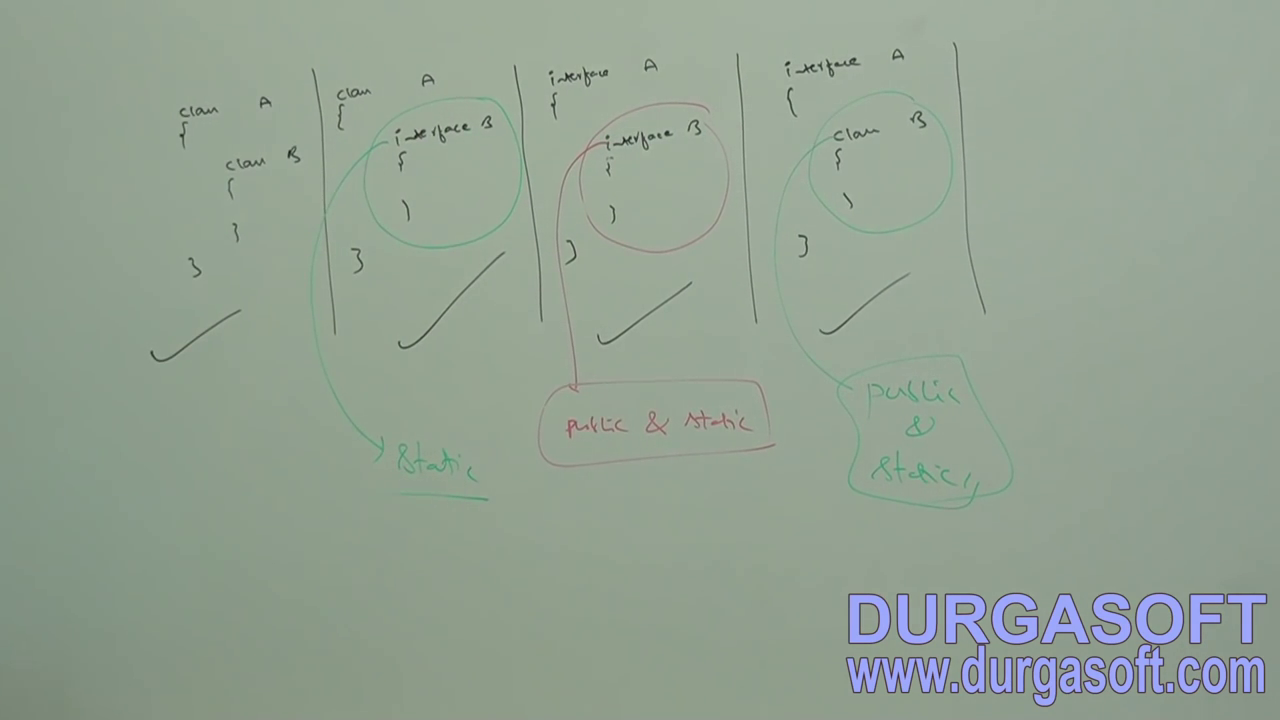 class A
{
class B
{
}
}
class A
{
interface B
{
}
}
static
interface A
{
interface B
{
}
}
public & static
interface A
{
class B
{
}
}
public
&
static,,
DURGASOFT
www.durgasoft.com